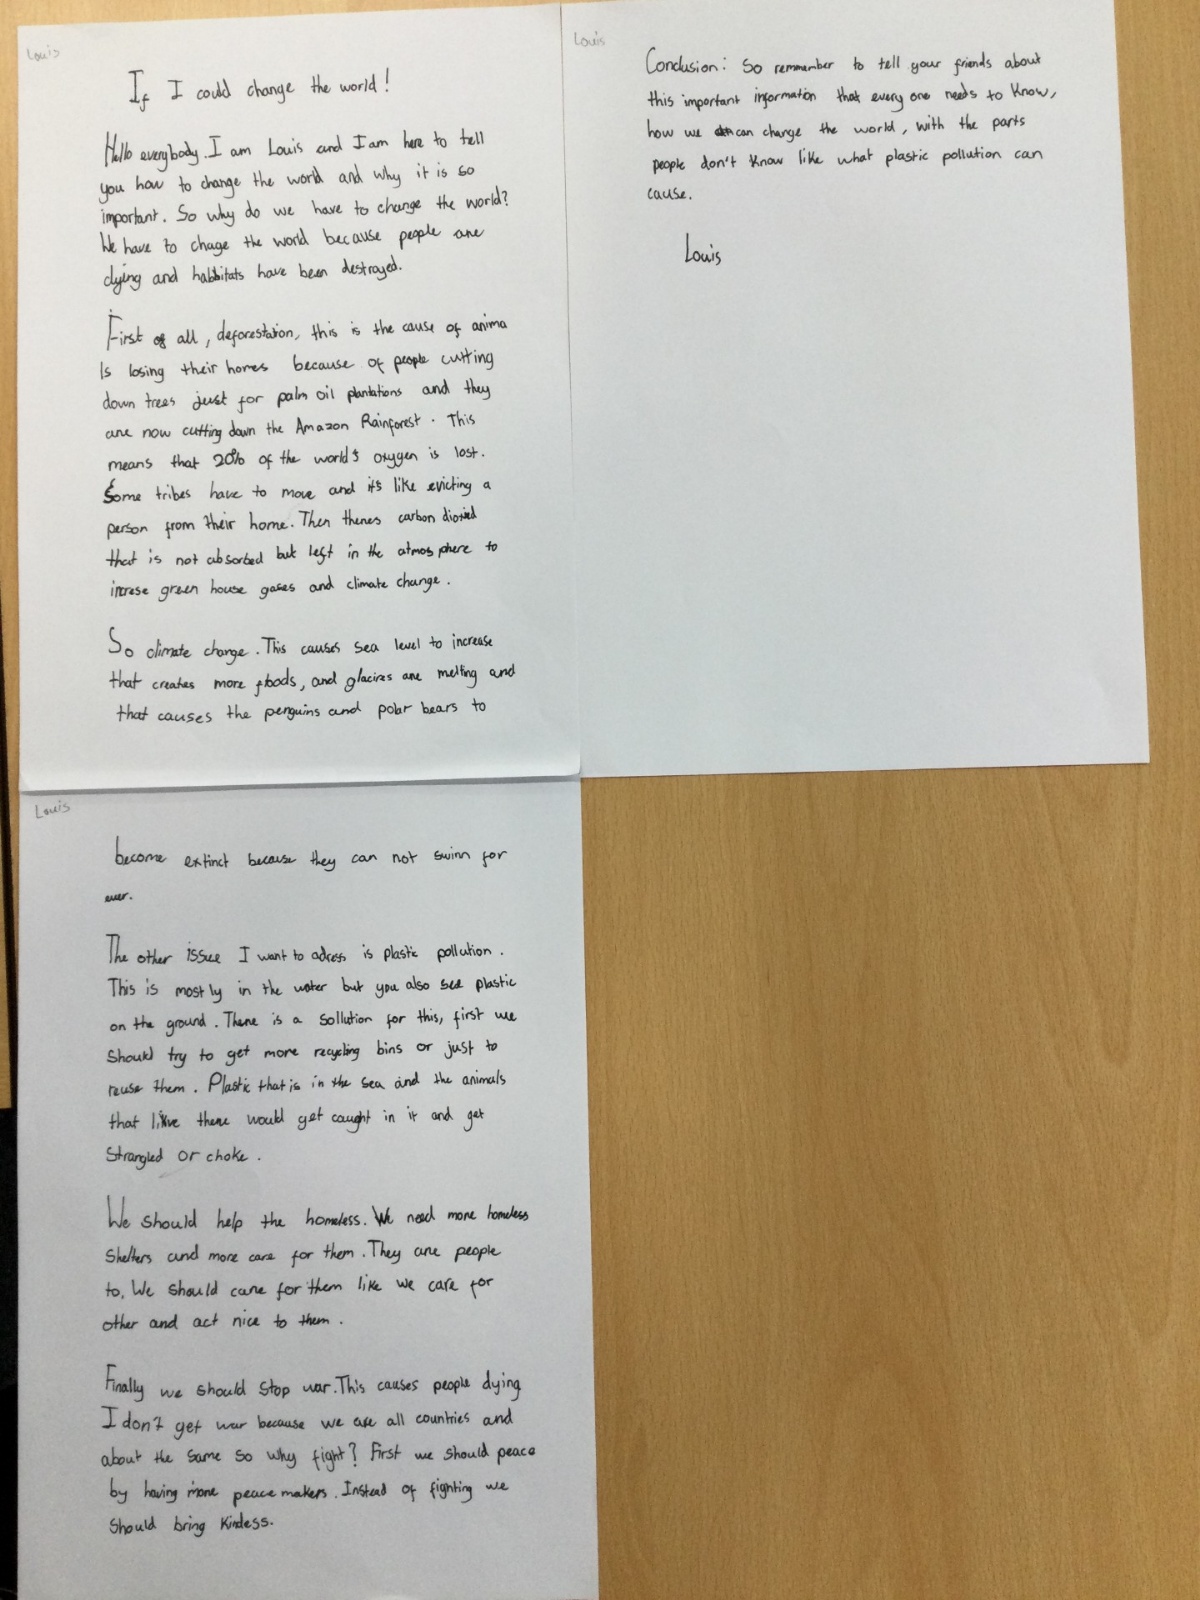 Louis
If I could change the world!
Hello everybody. I am Louis and I am here to tell
you how to change the world and why it is so
important. So why do we have to change the world?
We have to chage the world because people are
dying and habbitats have been destroyed.
First of all, deforestation, this is the cause of anima
ls losing their homes because of people cutting
down trees just for palm oil plantations and they
are now cutting down the Amazon Rainforest. This
means that 20% of the world's oxygen is lost.
Some tribes have to move and it's like evicting a
person from their home. Then theres carbon dioxied
that is not absorbed but left in the atmosphere to
increse green house gases and climate change.
So climate change. This causes sea level to increase
that creates more floods, and glacires are melting and
that causes the penguins and polar bears to
Louis
become extinct because they can not swim for
ever.
The other issue I want to adress is plastic pollution.
This is mostly in the water but you also see plastic
on the ground. There is a sollution for this, first we
should try to get more recycling bins or just to
reuse them. Plastic that is in the sea and the animals
that live there would get caught in it and get
strangled or choke.
We should help the homeless. We need more homeless
shelters and more care for them. They are people
to. We should care for them like we care for
other and act nice to them.
Finally we should stop war. This causes people dying
I don't get war because we are all countries and
about the same so why fight? First we should peace
by having more peace makers. Instead of fighting we
should bring kindess.
Louis
Conclusion: So remmember to tell your friends about
this important information that every one needs to know,
how we can change the world, with the parts
people don't know like what plastic pollution can
cause.
Louis